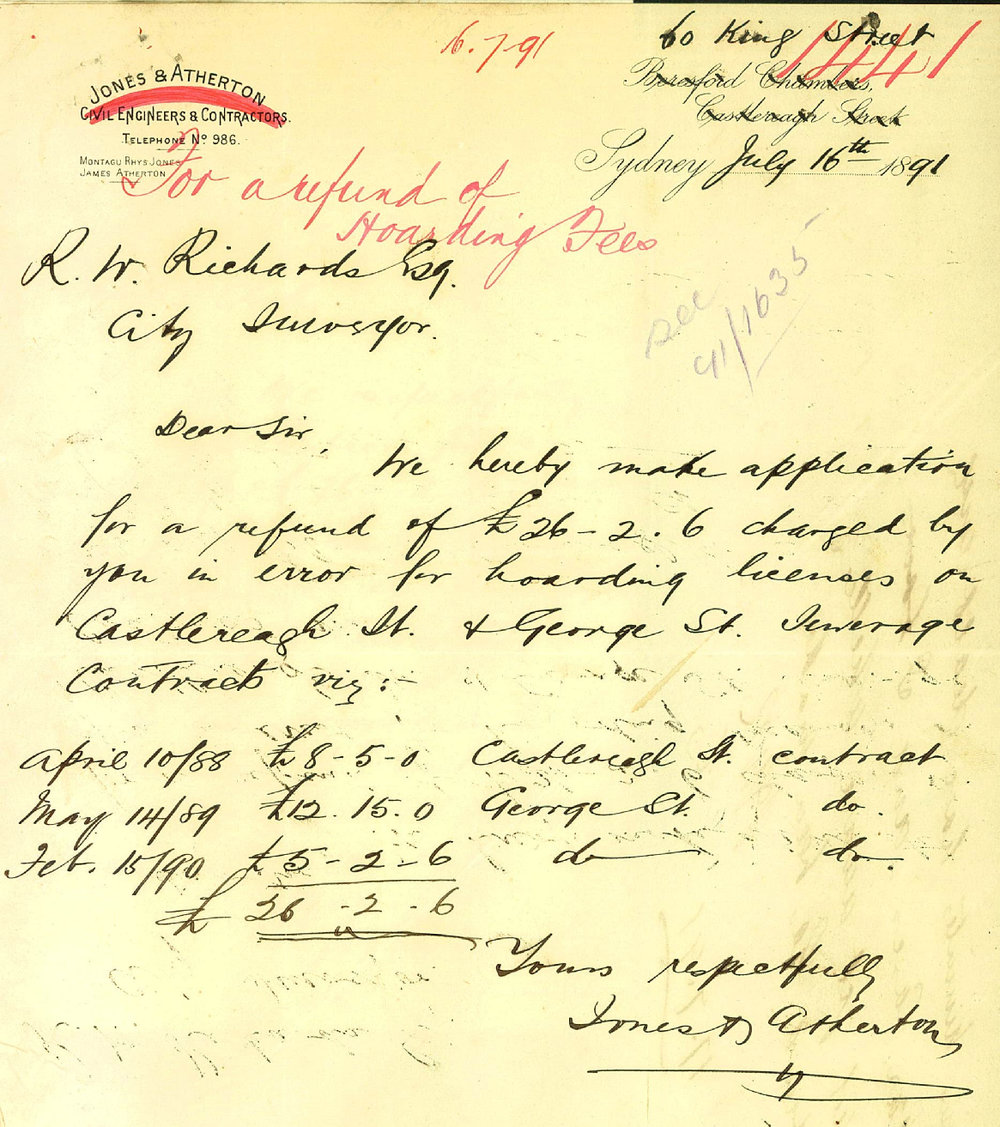 16.7.91
60 King Street
1441
JONES & ATHERTON
CIVIL ENGINEERS & CONTRACTORS.
TELEPHONE No 986.
MONTAGU RHYS JONES
JAMES ATHERTON
Beresford Chambers,
Castlereagh Street
Sydney July 16th 1891
For a refund of
Hoarding Fees
R. W. Richards Esq.
City Surveyor.
see
91/1635
Dear Sir,
We hereby make application
for a refund of £26-2.6 charged by
you in error for hoarding licenses on
Castlereagh St. & George St. Sewerage
Contracts viz:-
April 10/88 £8-5-0 Castlereagh St. contract
May 14/89 £12.15.0 George St. do.
Feb. 15/90 £5-2-6 do do.
£ 26-2-6
Yours respectfully
Jones & Atherton